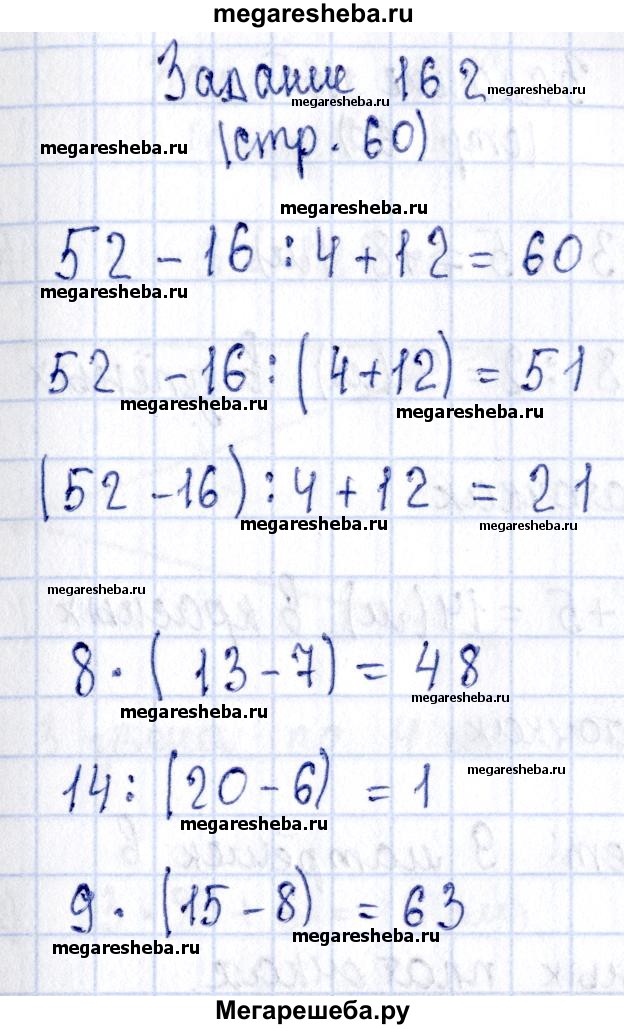 megaresheba.ru
Задание 162
megaresheba.ru megaresheba.ru
megaresheba.ru (стр. 60)
megaresheba.ru
52 - 16 : 4 + 12 = 60
megaresheba.ru
52 - 16 : (4+12) = 51
megaresheba.ru megaresheba.ru
(52 - 16) : 4 + 12 = 21
megaresheba.ru megaresheba.ru
megaresheba.ru
8 · (13 - 7) = 48
megaresheba.ru megaresheba.ru
14 : (20 - 6) = 1 megaresheba.ru
megaresheba.ru
9 · (15 - 8) = 63
megaresheba.ru megaresheba.ru
Мегарешеба.ру